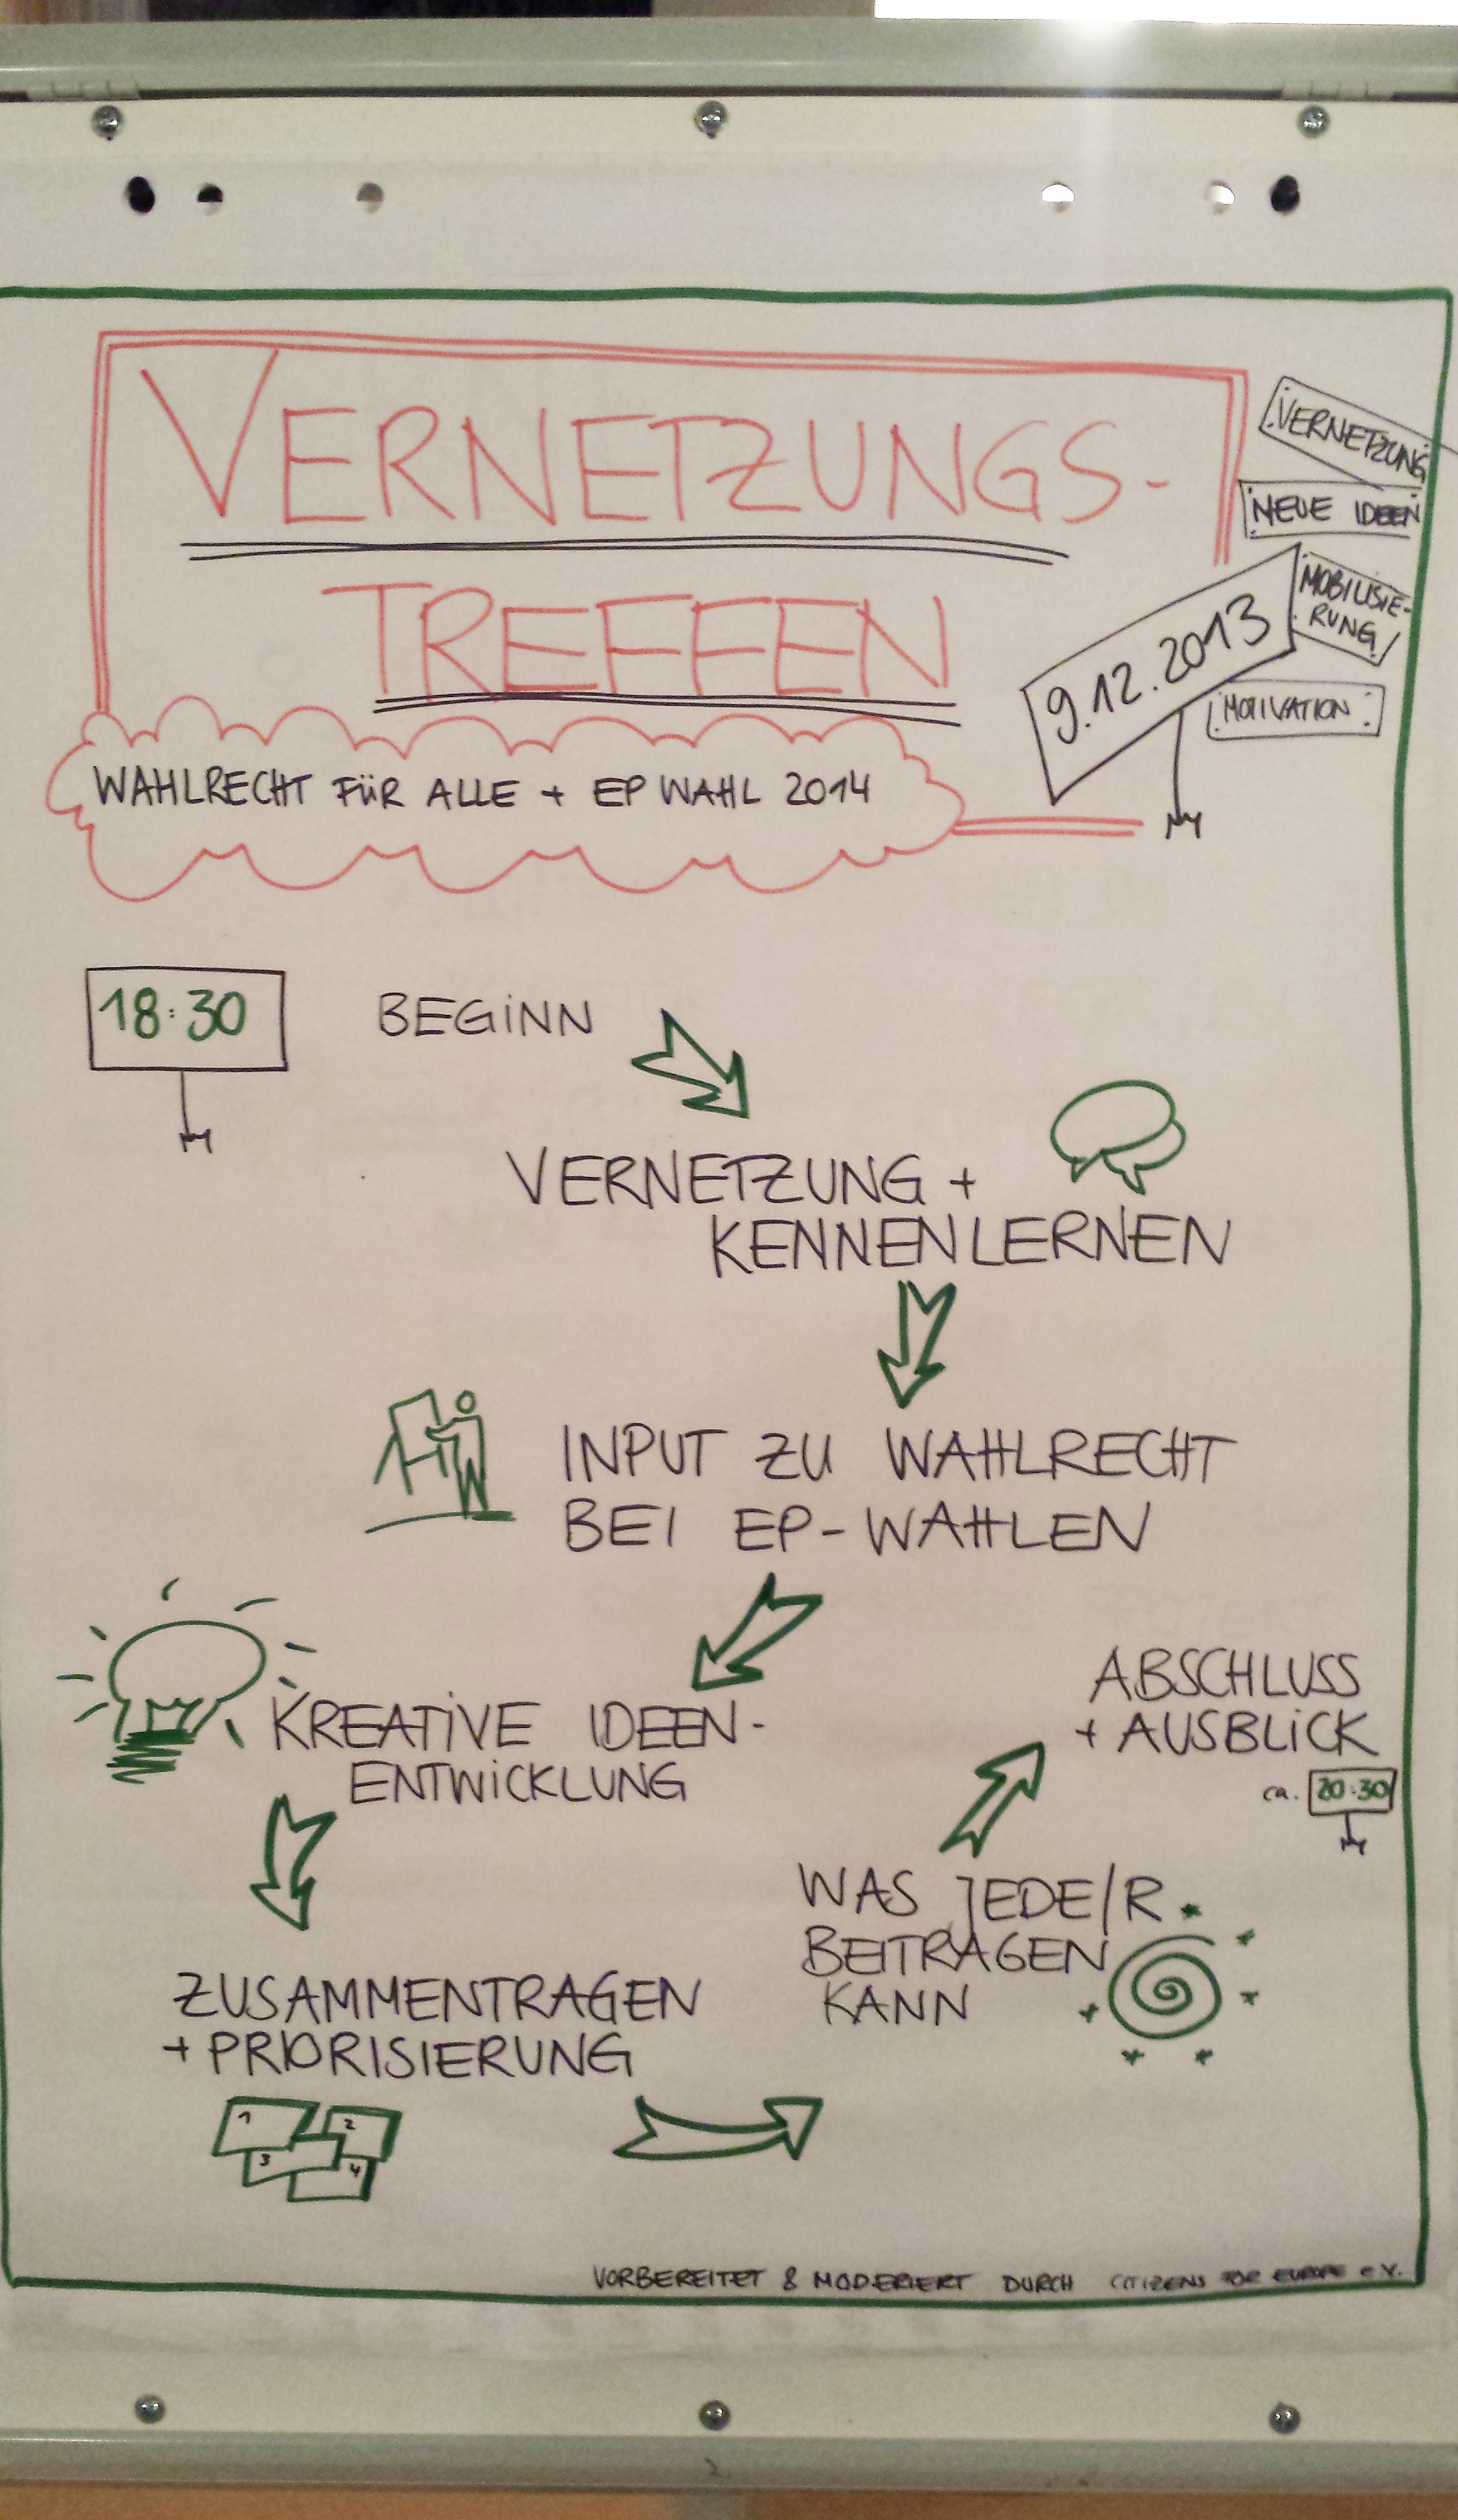 VERNETZUNGS-
TREFFEN
WAHLRECHT FÜR ALLE + EP WAHL 2014
VERNETZUNG
NEUE IDEEN
MOBILISIE-
RUNG
MOTIVATION
9.12.2013
18:30
BEGINN
VERNETZUNG +
KENNENLERNEN
INPUT ZU WAHLRECHT
BEI EP-WAHLEN
KREATIVE IDEEN-
ENTWICKLUNG
ZUSAMMENTRAGEN
+ PRIORISIERUNG
1
2
3
4
WAS JEDE/R
BEITRAGEN
KANN
ABSCHLUSS
+ AUSBLICK
ca. 20:30
VORBEREITET & MODERIERT DURCH CITIZENS FOR EUROPE e.V.